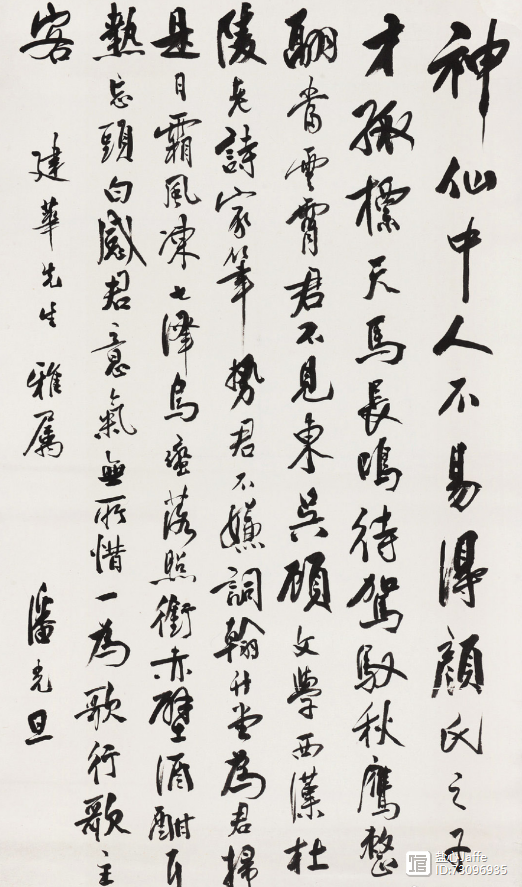 神仙中人不易得顏氏之子
才孤標天馬長鳴待駕馭秋鷹整
翮當雲霄君不見東吳顧文學西漢杜
陵老詩家筆勢君不嫌詞翰升堂為君掃
是日霜風凍七澤烏蠻落照銜赤壁酒酣耳
熱忘頭白感君意氣無所惜一為歌行歌主
客
建華先生 雅屬 潘光旦
盐心Jaffe
ID:73095935